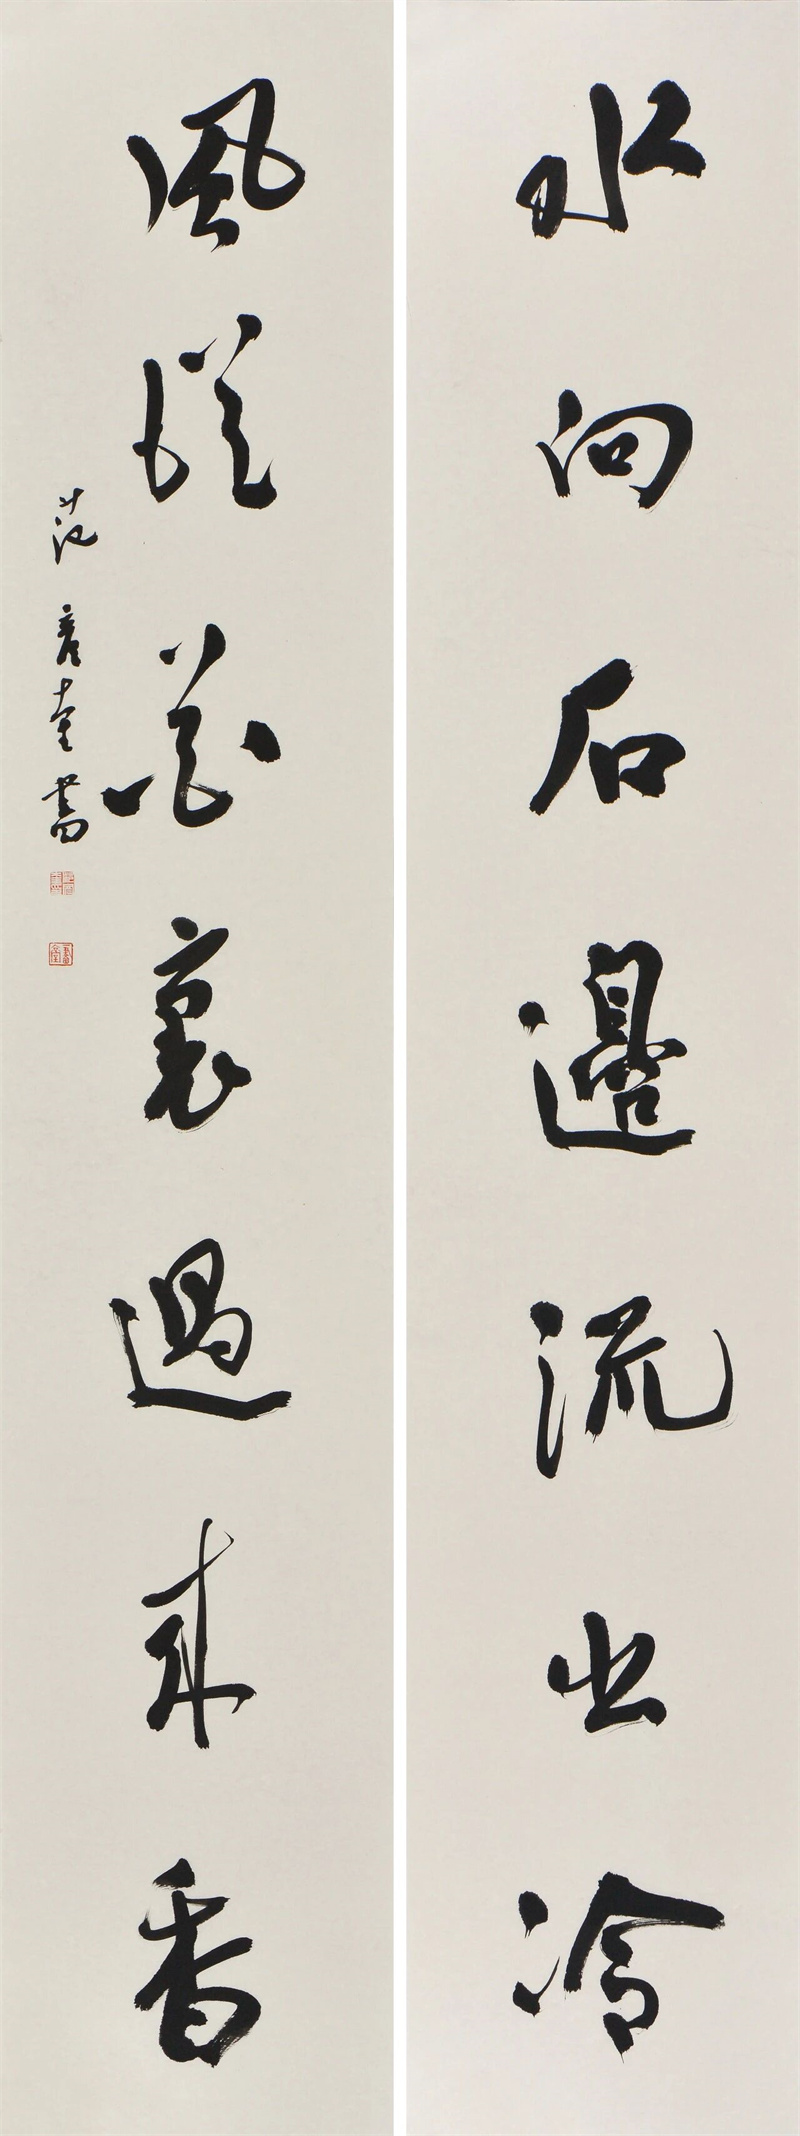 水向石邊流出冷
風從花裏過來香
范

書